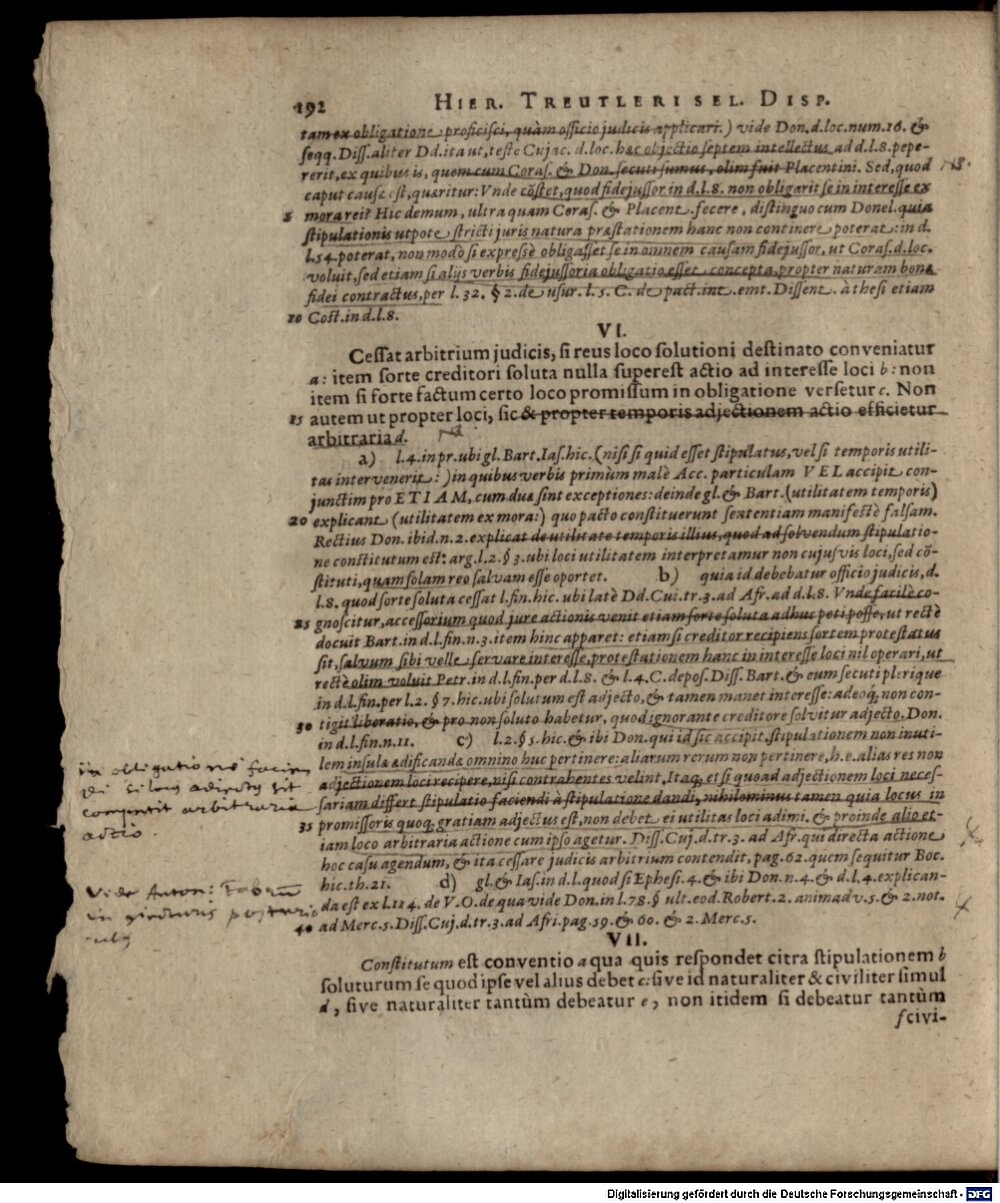 192 HIER. TREUTLERI SEL. DISP.
tam ex obligatione proficisci, quàm officio judicis applicari.) vide Don. d. loc. num. 16. &
seqq. Diss. aliter Dd. ita ut, teste Cujac. d. loc. hac objectio septem intellectus ad d. l. 8. pepe-
rerit, ex quibus is, quem cum Coras. & Don. secuti sumus, olim fuit Placentini. Sed, quod
caput causæ est, quæritur: Vnde cõstet, quod fidejussor in d. l. 8. non obligarit se in interesse ex
5 mora rei? Hic demum, ultra quam Coras. & Placent. fecere, distinguo cum Donel. quia
stipulationis utpote stricti juris natura præstationem hanc non continere poterat: in d.
l. 54. poterat, non modò si expressè obligasset se in omnem causam fidejussor, ut Coras. d. loc.
voluit, sed etiam si alijs verbis fidejussoria obligatio esset concepta, propter naturam bonæ
fidei contractus, per l. 32. § 2. de usur. l. 5. C. de pact. int. emt. Dissent. à thesi etiam
10 Cost. in d. l. 8.
VI.
Cessat arbitrium judicis, si reus loco solutioni destinato conveniatur
a: item sorte creditori soluta nulla superest actio ad interesse loci b: non
item si forte factum certo loco promissum in obligatione versetur c. Non
15 autem ut propter loci, sic & propter temporis adjectionem actio efficietur
arbitraria d.
a) l. 4. in pr. ubi gl. Bart. Ias. hic. (nisi si quid esset stipulatus, vel si temporis utili-
tas intervenerit: ) in quibus verbis primùm malè Acc. particulam VEL accipit con-
junctim pro ETIAM, cum duæ sint exceptiones: deinde gl. & Bart. (utilitatem temporis)
20 explicant (utilitatem ex mora:) quo pacto constituerunt sententiam manifestè falsam.
Rectius Don. ibid. n. 2. explicat de utilitate temporis illius, quod ad solvendum stipulatio-
ne constitutum est: arg. l. 2. § 3. ubi loci utilitatem interpretamur non cujusvis loci, sed cõ-
stituti, quam solam reo salvam esse oportet. b) quia id debebatur officio judicis, d.
l. 8. quod sorte soluta cessat l. fin. hic. ubi latè Dd. Cui. tr. 3. ad Afr. ad d. l. 8. Vnde facilè co-
25 gnoscitur, accessorium quod jure actionis venit etiam sorte soluta adhuc peti posse, ut rectè
docuit Bart. in d. l. fin. n. 3. item hinc apparet: etiamsi creditor recipiens sortem protestatus
sit, salvum sibi velle servare interesse, protestationem hanc in interesse loci nil operari, ut
rectè olim voluit Petr. in d. l. fin. per d. l. 8. & l. 4. C. depos. Diss. Bart. & eum secuti plerique
in d. l. fin. per l. 2. § 7. hic. ubi solutum est adjecto, & tamen manet interesse: adeoq́; non con-
30 tigit liberatio, & pro non soluto habetur, quod ignorante creditore solvitur adjecto. Don.
in d. l. fin. n. 11. c) l. 2. § 5. hic. & ibi Don. qui id sic accipit, stipulationem non inuti-
lem insulæ ædificandæ omnino huc pertinere: aliarum rerum non pertinere, h. e. alias res non
adjectionem loci recipere, nisi contrahentes velint, Itaq; et si quoad adjectionem loci neces-
sariam differt stipulatio faciendi à stipulatione dandi, nihilominus tamen quia locus in
35 promissoris quoq; gratiam adjectus est, non debet ei utilitas loci adimi. & proinde alio et-
iam loco arbitraria actione cum ipso agetur. Diss. Cuj. d. tr. 3. ad Afr. qui directa actione
hoc casu agendum, & ita cessare judicis arbitrium contendit, pag. 62. quem sequitur Boc.
hic. th. 21. d) gl. & Ias. in d. l. quod si Ephesi. 4. & ibi Don. n. 4. & d. l. 4. explican-
da est ex l. 114. de V. O. de qua vide Don. in l. 78. § ult. eod. Robert. 2. animadv. 5. & 2. not.
40 ad Merc. 5. Diss. Cuj. d. tr. 3. ad Afri. pag. 59. & 60. & 2. Merc. 5.
VII.
Constitutum est conventio a qua quis respondet citra stipulationem b
soluturum se quod ipse vel alius debet c: sive id naturaliter & civiliter simul
d, sive naturaliter tantùm debeatur e, non itidem si debeatur tantùm
f civi-
in obligatione facien
di si locus adjectus sit
competit arbitraria
actio.
Vide Anton: Fabrum
in
Digitalisierung gefördert durch die Deutsche Forschungsgemeinschaft - DFG